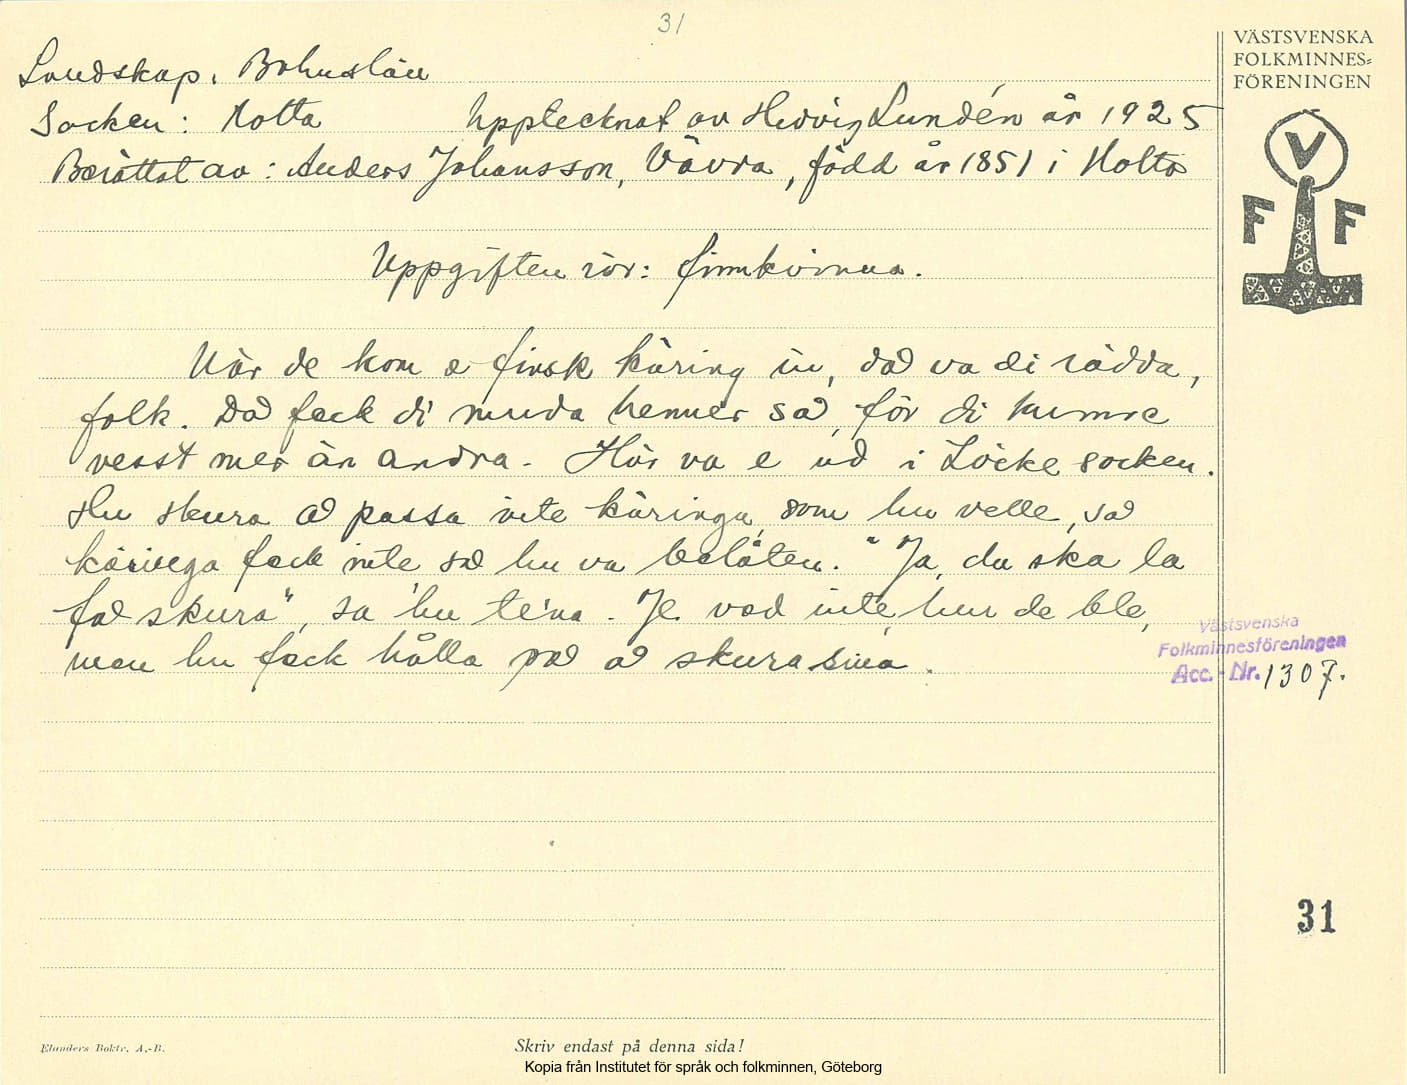 31
VÄSTSVENSKA
FOLKMINNES=
FÖRENINGEN
V
F F
Landskap: Bohuslän
Socken: Holta Upptecknat av Hedvig Lundén år 1925
Berättat av: Anders Johansson, Vävra, född år 1851 i Holta
Uppgiften rör: finnkvinna.
När de kom e finsk käring in, då va di rädda,
folk. Då feck di muda henner så, för di kunne
vesst mer än andra. Här va e ud i Löcke socken.
Hu skura å passa inte käringa, som hu velle, så
käringa feck inte så hu va belåten. "Ja, du ska la
få skura", sa hu te'na. Je ved inte, hur de ble,
men hu feck hålla på å skura sina.
Västsvenska
Folkminnesföreningen
Acc. - Nr. 1307.
31
Elanders Boktr. A.-B.
Skriv endast på denna sida!
Kopia från Institutet för språk och folkminnen, Göteborg